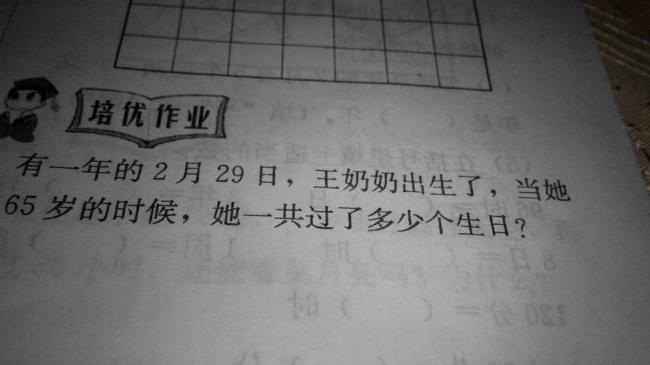 培优作业
有一年的2月29日，王奶奶出生了，当她
65岁的时候，她一共过了多少个生日？